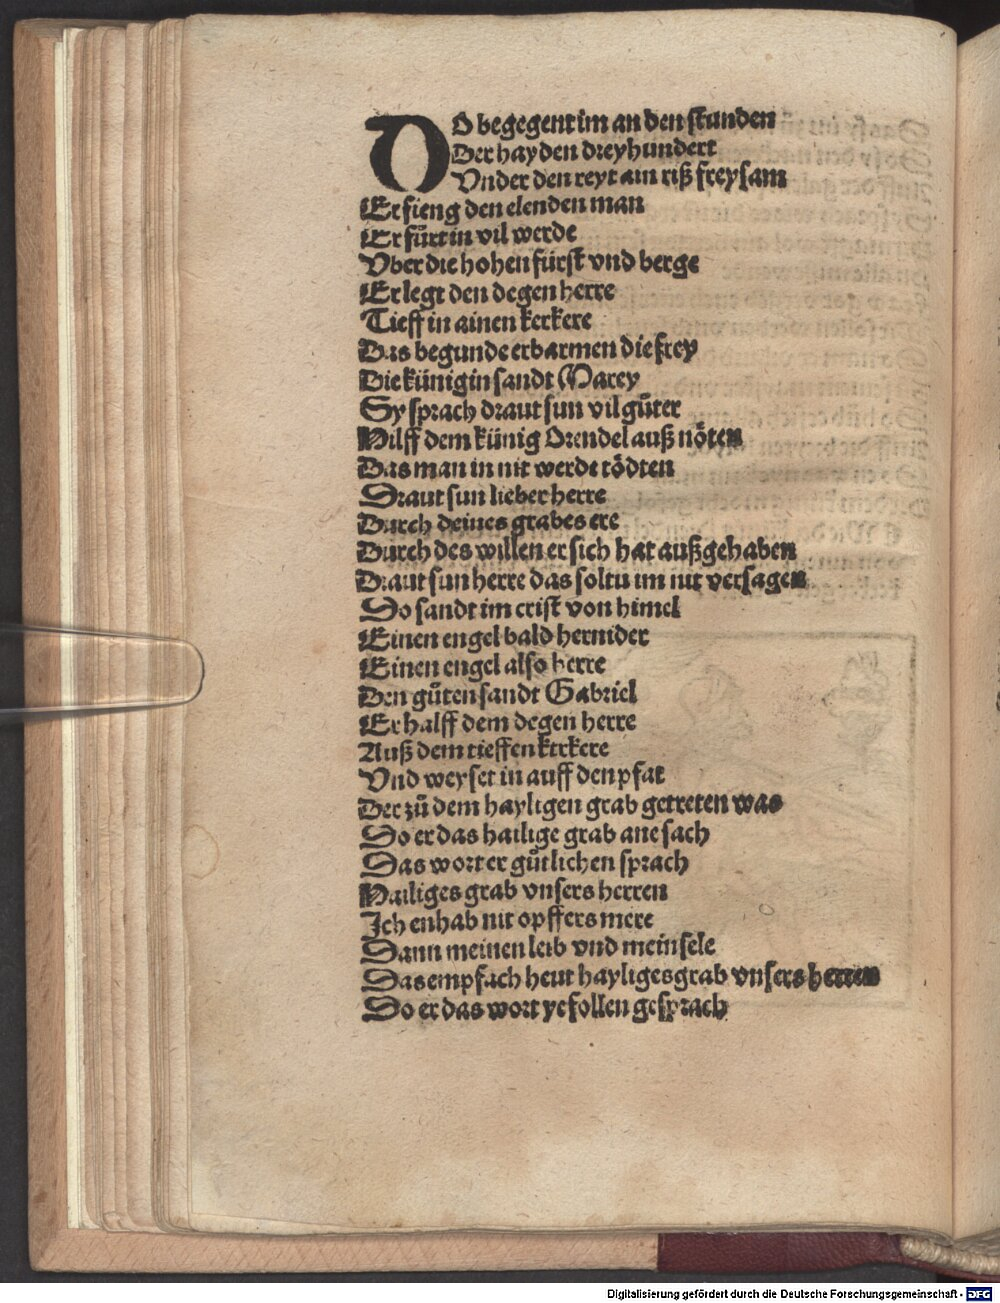 DO begegent im an den stunden
Der hayden dreyhundert
Vnder den reyt ain riß freysam
Er fieng den elenden man
Er fůrt in vil werde
Vber die hohen fürst vnd berge
Er legt den degen herre
Tieff in ainen kerkere
Das begunde erbarmen die frey
Die künigin sandt Marey
Sy sprach draut sun vil gůter
Hilff dem künig Orendel auß nöten
Das man in nit werde tödten
Draut sun lieber herre
Durch deines grabes ere
Durch des willen er sich hat außgehaben
Draut sun herre das soltu im nit versagen
Do sandt im crist von himel
Einen engel bald hernider
Einen engel also herre
Den gůten sandt Gabriel
Er halff dem degen herre
Auß dem tieffen kerkere
Vnd weyset in auff den pfat
Der zů dem hayligen grab getreten was
Do er das hailige grab ane sach
Das wort er gůtlichen sprach
Hailiges grab vnsers herren
Ich enhab nit opffers mere
Dann meinen leib vnd mein sele
Das empfach heut hayliges grab vnsers herren
Do er das wort ye follen gesprach
Digitalisierung gefördert durch die Deutsche Forschungsgemeinschaft - DFG